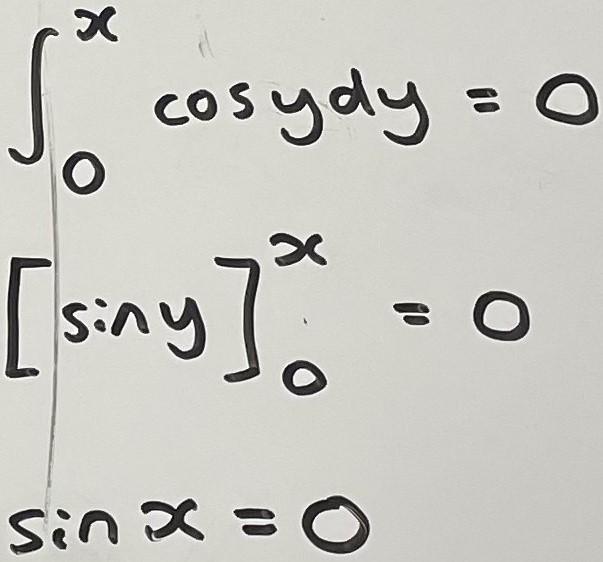 ∫₀ˣ cosydy = 0
[siny]₀ˣ = 0
sinx = 0